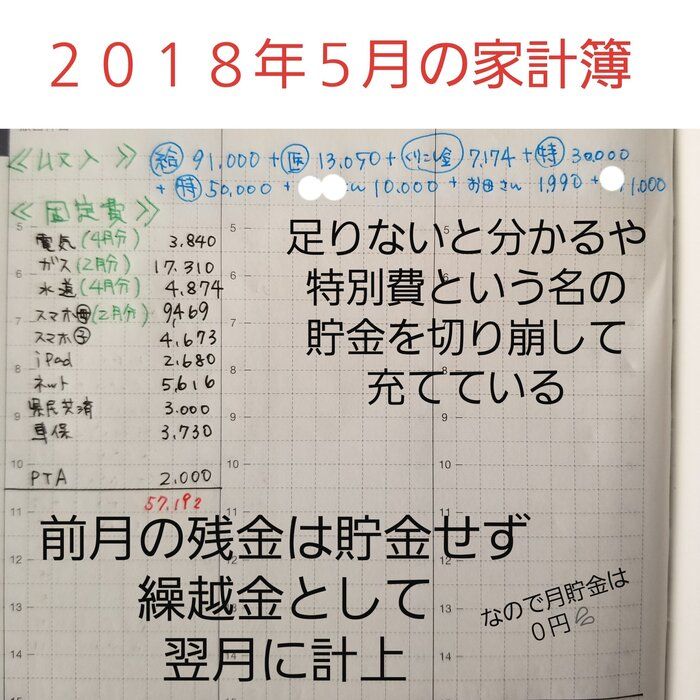 ２０１８年５月の家計簿
≪収入≫ 給 91,000 + 医 13,050 + くりこし金 7,174 + 特 30,000
+ 特 50,000 + ん 10,000 + お母さん 1,990 + 1,000
≪固定費≫
電気(4月分) 3,840
ガス(2月分) 17,310
水道(4月分) 4,874
スマホ母(2月分) 9,469
スマホ子 4,673
iPad 2,680
ネット 5,616
県民共済 3,000
車保 3,730
PTA 2,000
57,192
足りないと分かるや
特別費という名の
貯金を切り崩して
充てている
前月の残金は貯金せず
繰越金として
翌月に計上
なので月貯金は
０円
5 5 5
6 6 6
7 7 7
8 8 8
9 9 9
10 10 10
11 11 11
12 12
13 13 13
14 14 14